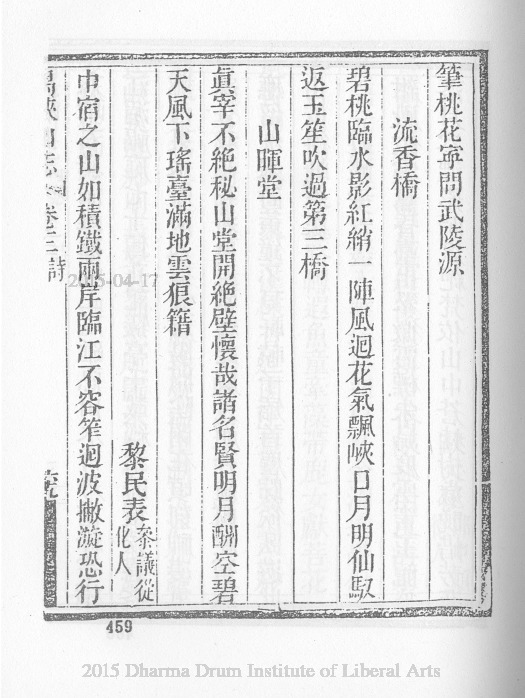 筆桃花寧問武陵源
流香橋
碧桃臨水影紅綃一陣風迴花氣飄峽口月明仙馭
返玉笙吹過第三橋
山暉堂
眞宰不絶秘山堂開絶壁懷哉諸名賢明月酬空碧
天風下瑤臺滿地雲狼籍
黎民表
叅議從
化人
中宿之山如積鐵兩岸臨江不容笮迴波撇漩恐行
山志
卷三
詩
2015-04-17
459
2015 Dharma Drum Institute of Liberal Arts